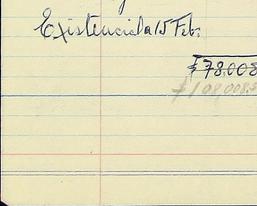 Existencia a 15 Feb.
$78,008
$108,008.